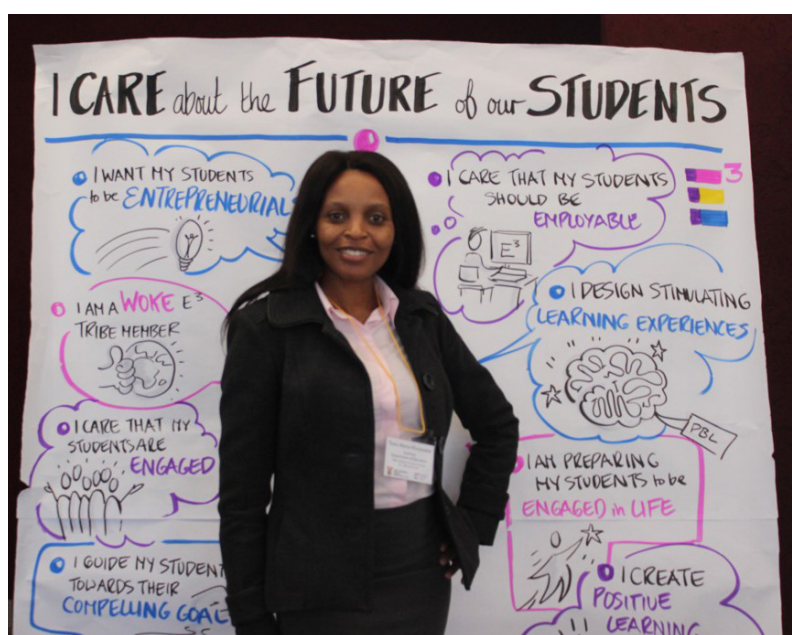 I CARE about the FUTURE of our STUDENTS
I WANT MY STUDENTS
to be ENTREPRENEURIAL
I AM A WOKE E³
TRIBE MEMBER
I CARE THAT MY
STUDENTS ARE
ENGAGED
I GUIDE MY STUDENT
TOWARDS THEIR
COMPELLING GOAL
I CARE THAT MY STUDENTS
SHOULD BE
EMPLOYABLE
3
E³
I DESIGN STIMULATING
LEARNING EXPERIENCES
PBL
I AM PREPARING
MY STUDENTS to be
ENGAGED in LIFE
I CREATE
POSITIVE
LEARNING